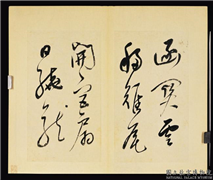 函關雲
移雉尾
開宮扇
日繞龍
國立故宮博物院
NATIONAL PALACE MUSEUM